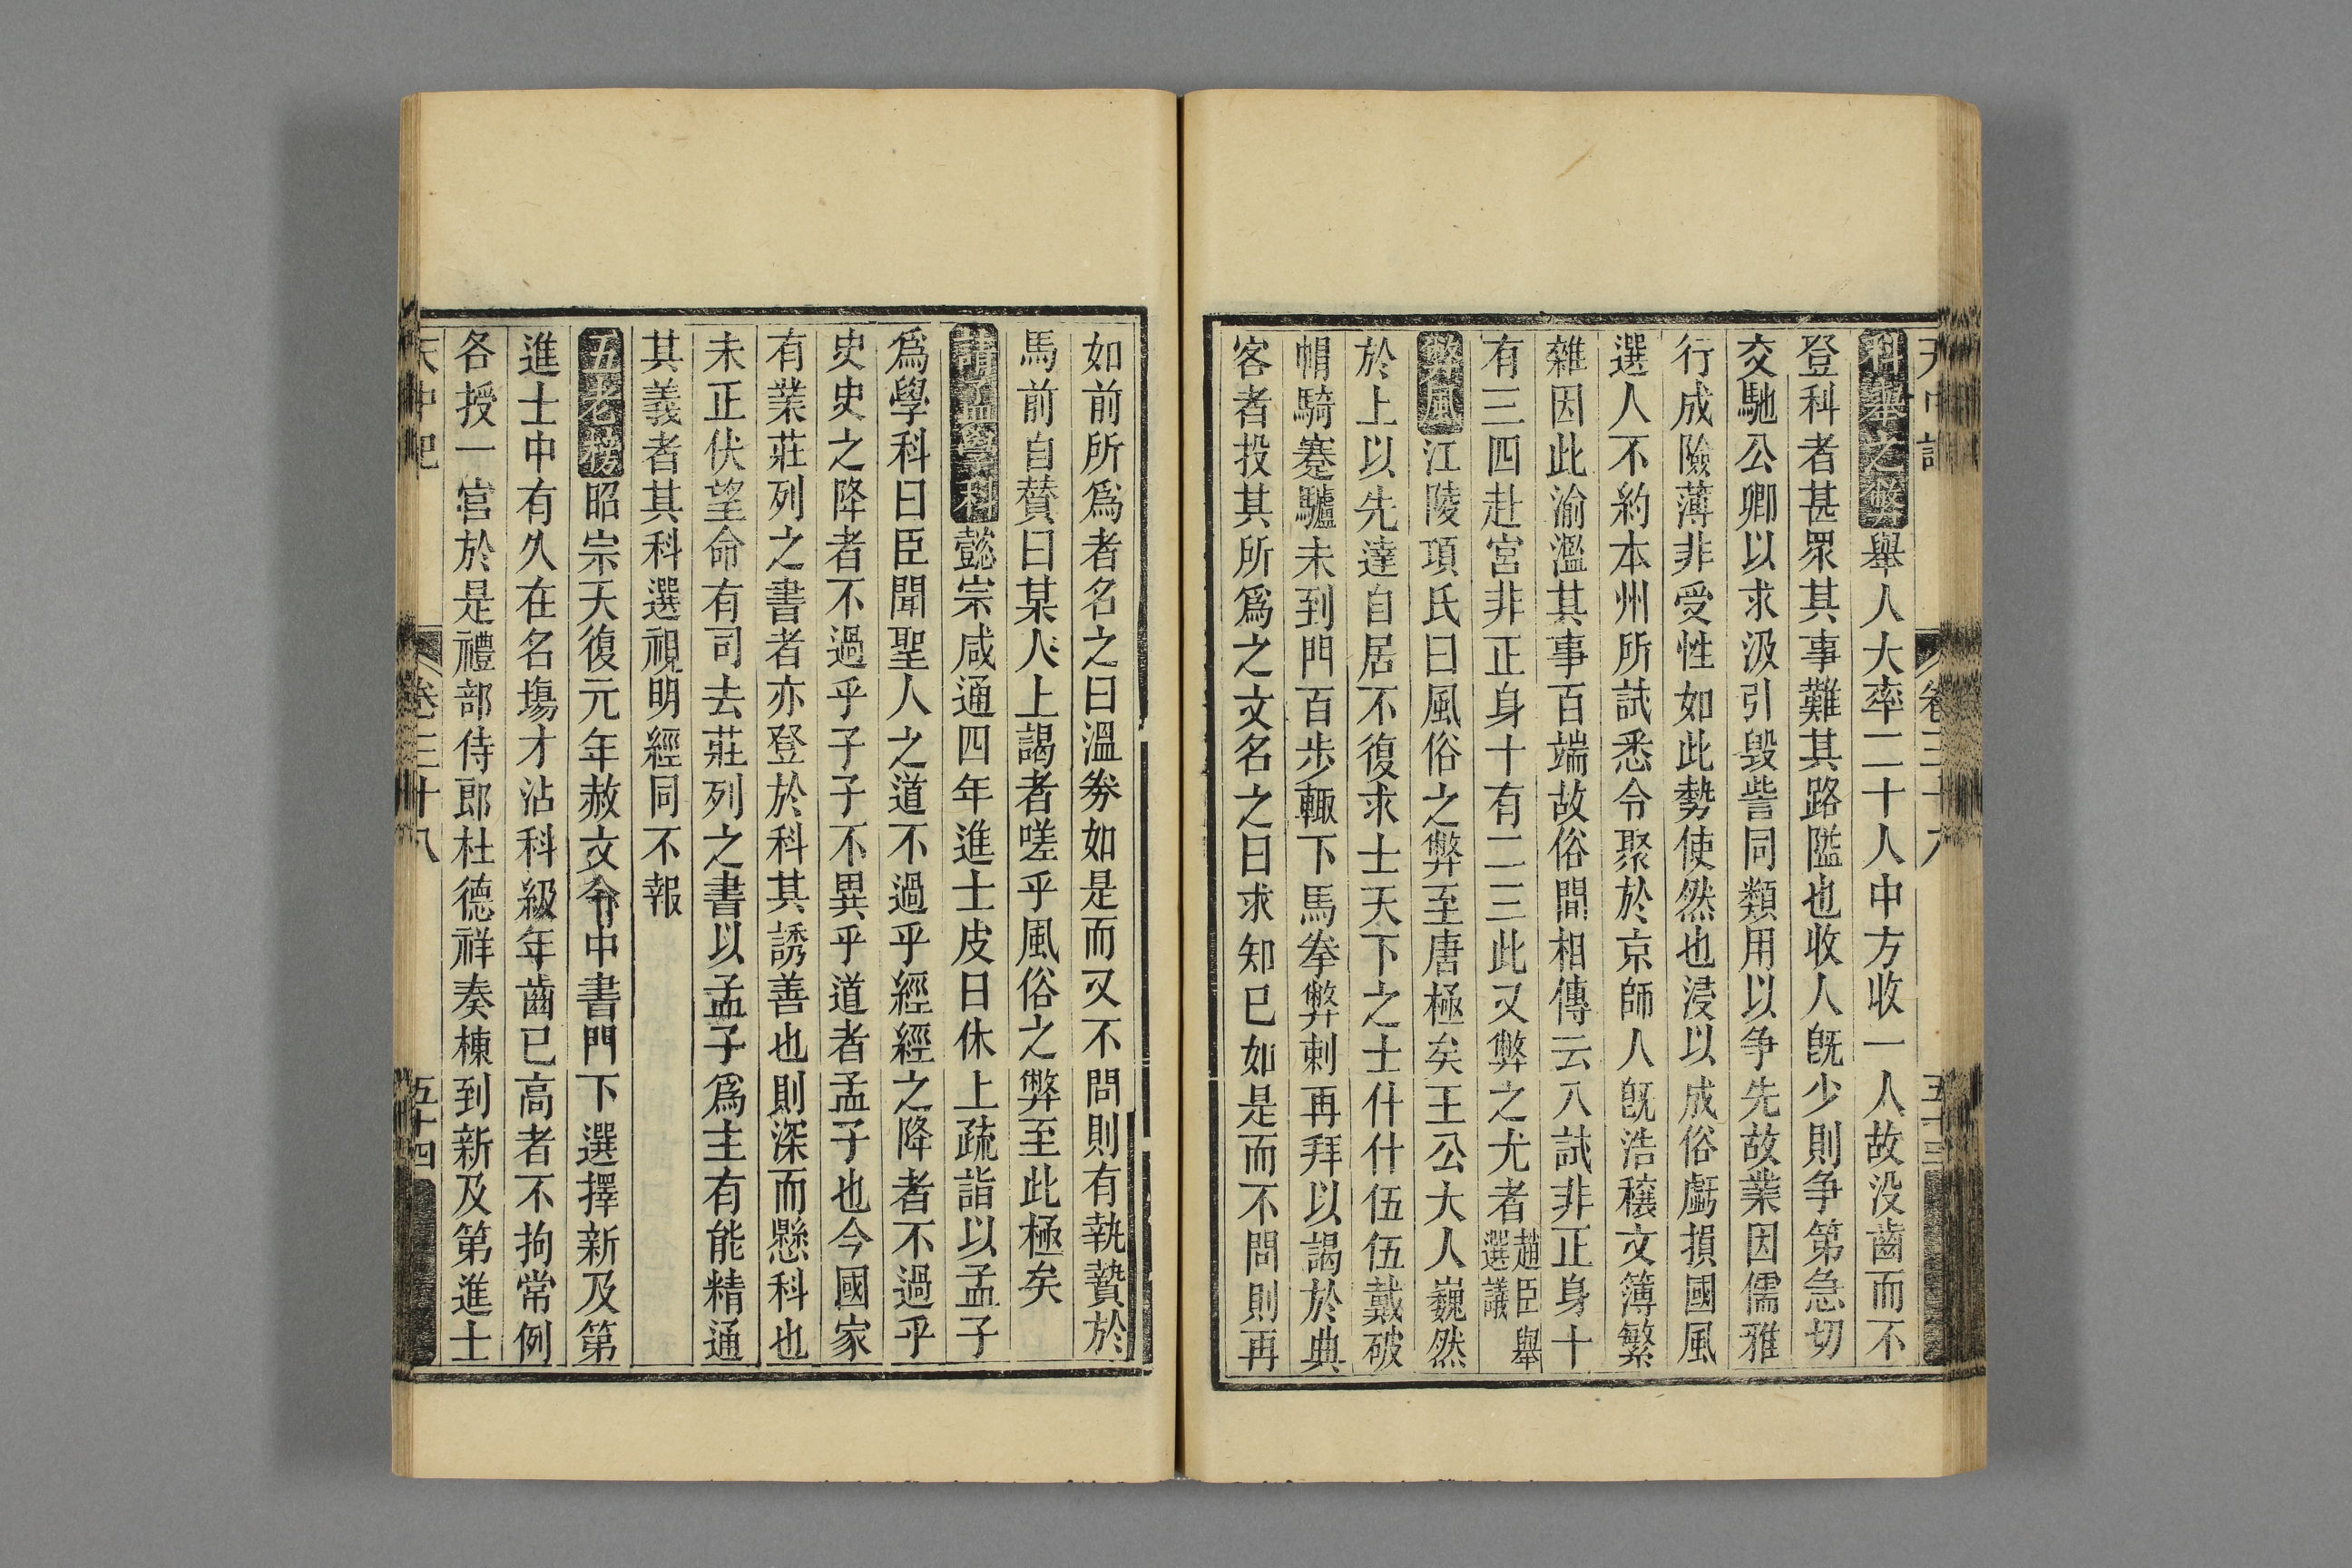 天中記 卷三十八 五十三
科舉之弊舉人大率二十人中方收一人故没齒而不
登科者甚眾其事難其路隘也收人旣少則爭第急切
交馳公卿以求汲引毀訾同類用以爭先故業因儒雅
行成險薄非受性如此勢使然也浸以成俗虧損國風
選人不約本州所試悉令聚於京師人旣浩穰文簿繁
雜因此渝濫其事百端故俗間相傳云入試非正身十
有三四赴官非正身十有二三此又弊之尤者趙匡舉選議
弊風江陵項氏曰風俗之弊至唐極矣王公大人巍然
於上以先達自居不復求士天下之士什什伍伍戴破
帽騎蹇驢未到門百步輒下馬奉弊刺再拜以謁於典
客者投其所爲之文名之曰求知已如是而不問則再
如前所爲者名之曰溫劵如是而又不問則有執贄於
馬前自贊曰某人上謁者嗟乎風俗之弊至此極矣
請孟學科懿宗咸通四年進士皮日休上疏詣以孟子
爲學科曰臣聞聖人之道不過乎經經之降者不過乎
史史之降者不過乎子子不異乎道者孟子也今國家
有業莊列之書者亦登於科其誘善也則深而懸科也
未正伏望命有司去莊列之書以孟子爲主有能精通
其義者其科選視明經同不報
五老榜昭宗天復元年赦文令中書門下選擇新及第
進士中有久在名塲才沾科級年齒已高者不拘常例
各授一官於是禮部侍郎杜德祥奏棟到新及第進士
天中記 卷三十八 五十四